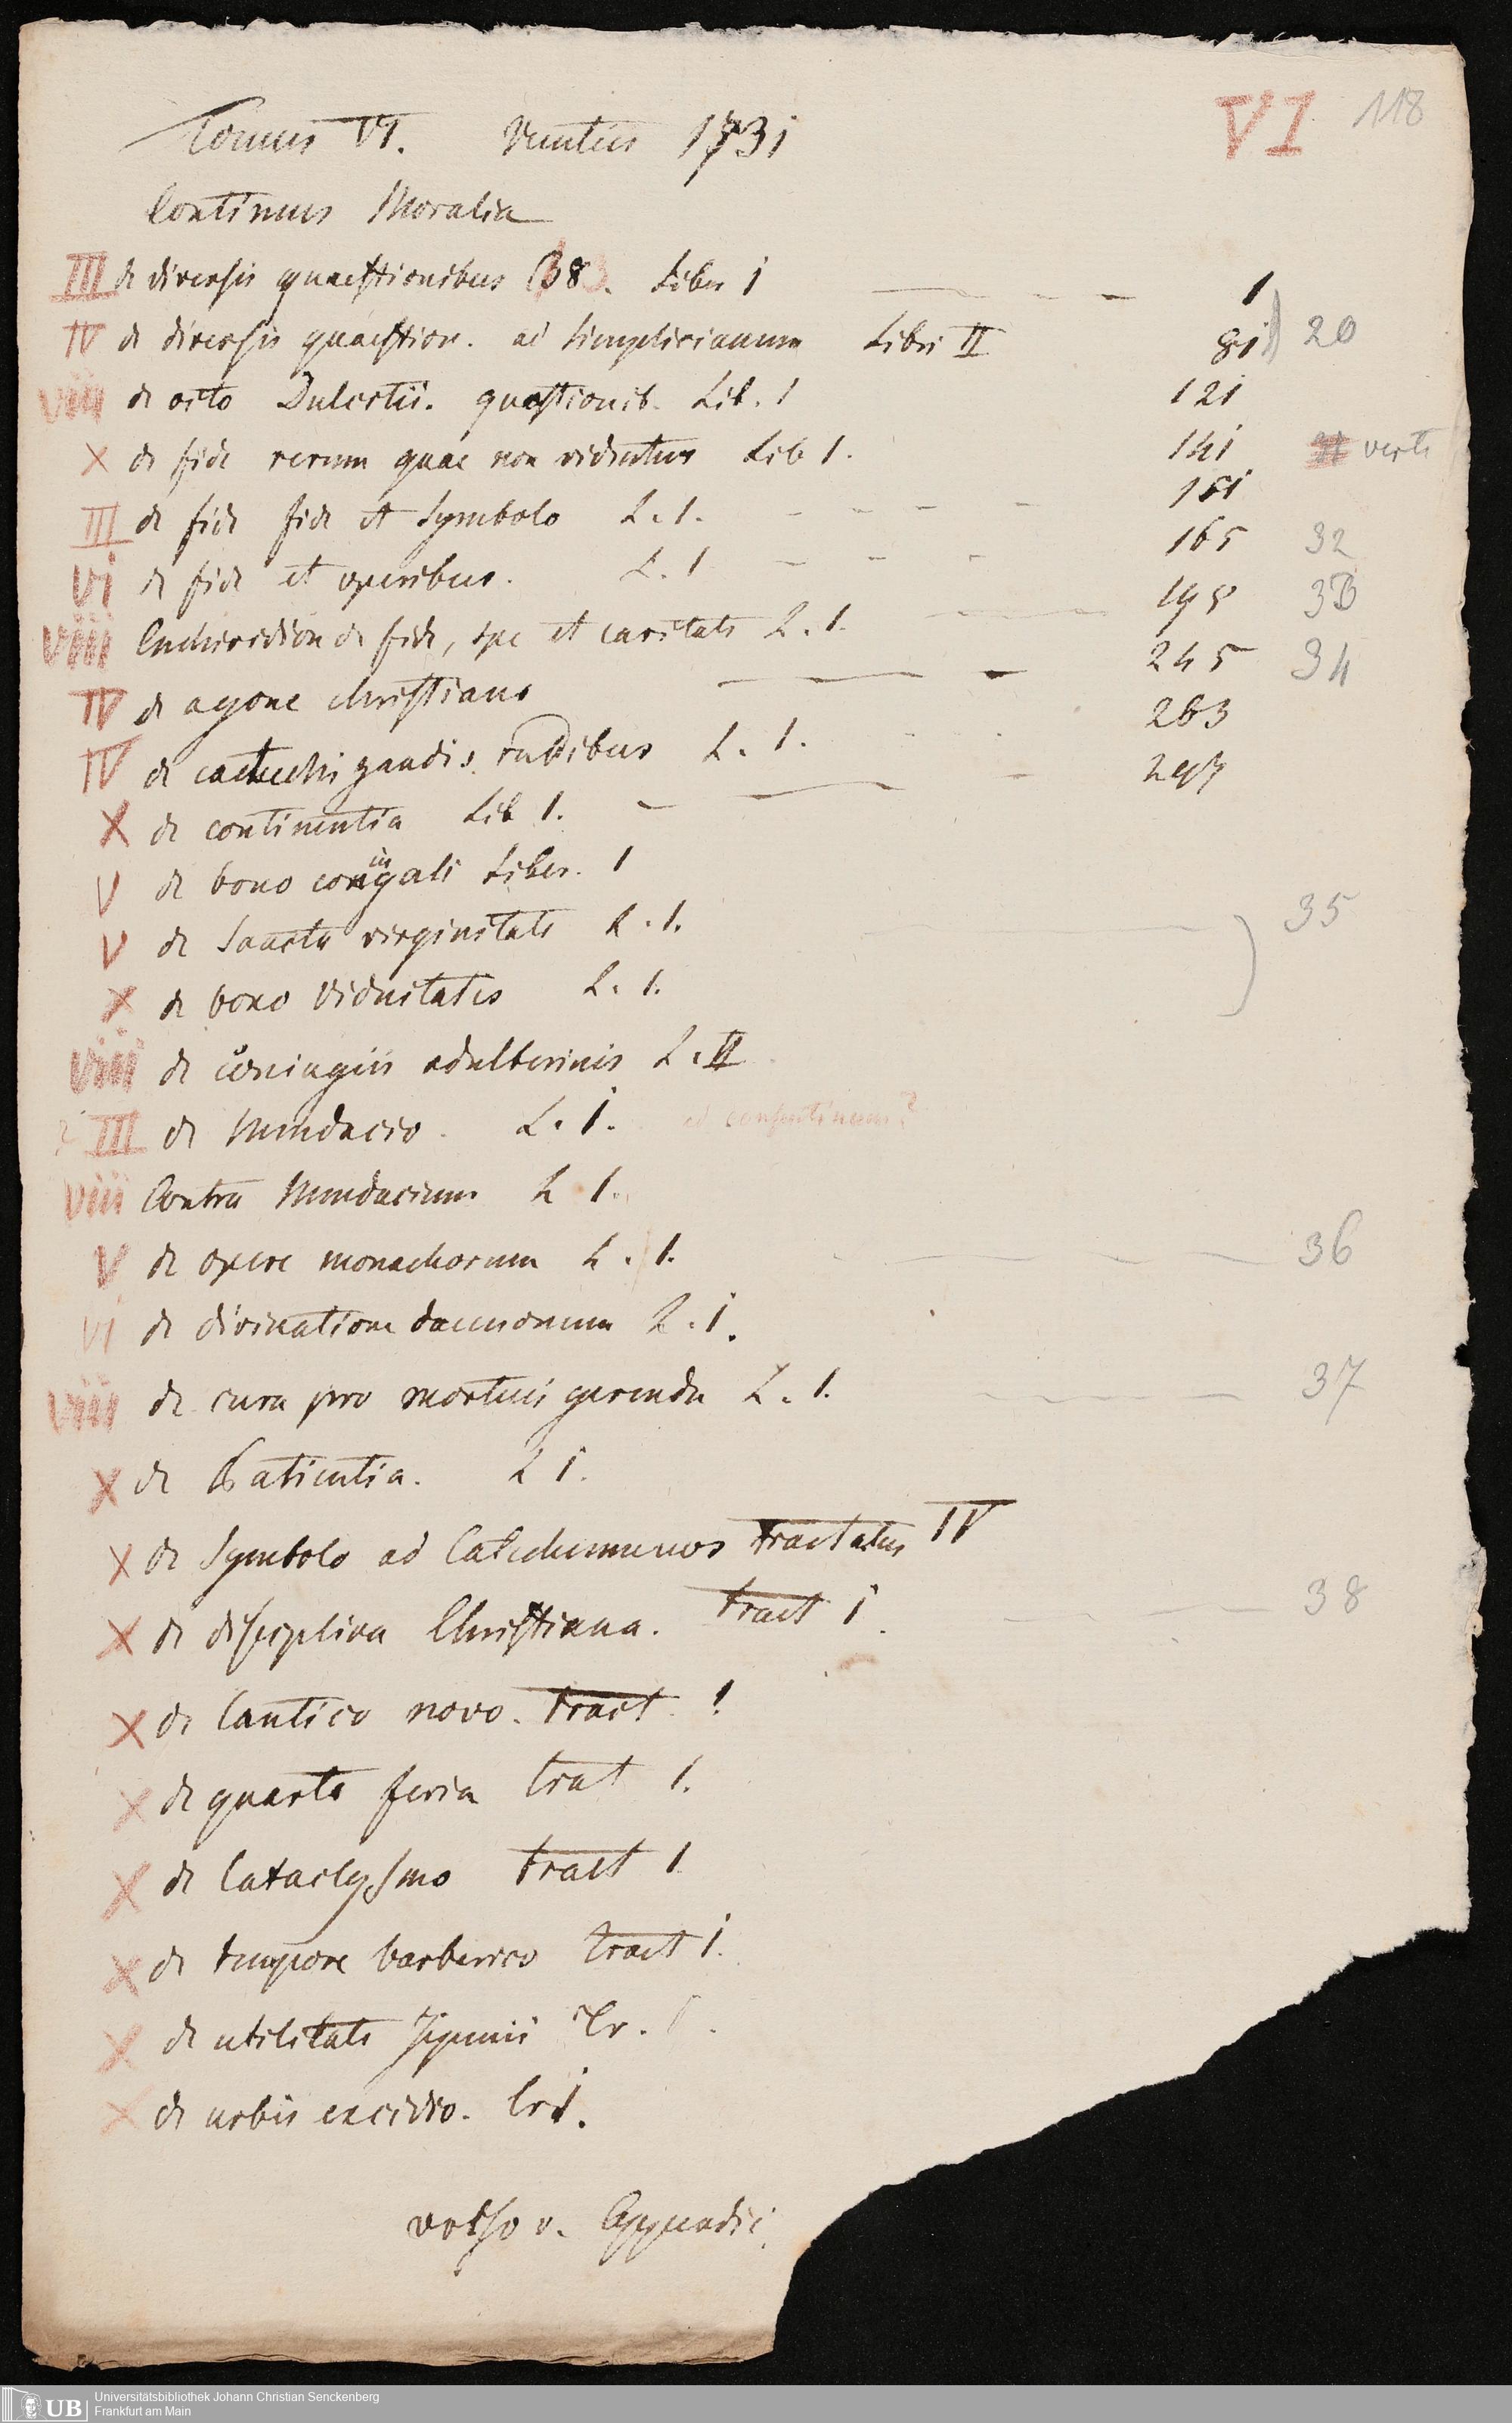 VI 118
Tomus VI. Venetiis 1731
Continens Moralia
III de diversis quaestionibus 83. Liber I 1
IV de diversis quaestion. ad Simplicianum Libri II 81 20
viii de octo Dulcitii. quaestionib. Lib. 1 121
X de fide rerum quae non videntur Lib 1. 141 verte
III de fide fide et Symbolo L. 1. 151
vi de fide et operibus. L. 1 165 32
viii Enchiridion de fide, spe et caritate L. 1. 195 33
IV de agone christiano 245 34
IV de catechizandis rudibus L. 1. 263
X de continentia Lib 1. 297
V de bono coniugali Liber. 1
V de Sancta virginitate L. 1. 35
X de bono Viduitatis L. 1.
viii de coniugiis adulterinis L. II
? III de Mendacio. L. I. ad consentinum?
viii Contra Mendacium L 1.
V de opere monachorum L. 1. 36
vi de divinatione daemonum L. i.
viii de cura pro mortuis gerenda L. 1. 37
X de Patientia. L i.
X de Symbolo ad Catechumenos tractatus IV
X de disciplina Christiana. tract i. 38
X de Cantico novo. tract. 1
X de quarta feria trat 1.
X de Cataclysmo tract 1
X de tempore barbarico tract i.
X de utilitate Jejunii Tr. 1.
X de urbis excidio. Tr i.
verso v. Appendix
UB Universitätsbibliothek Johann Christian Senckenberg
Frankfurt am Main